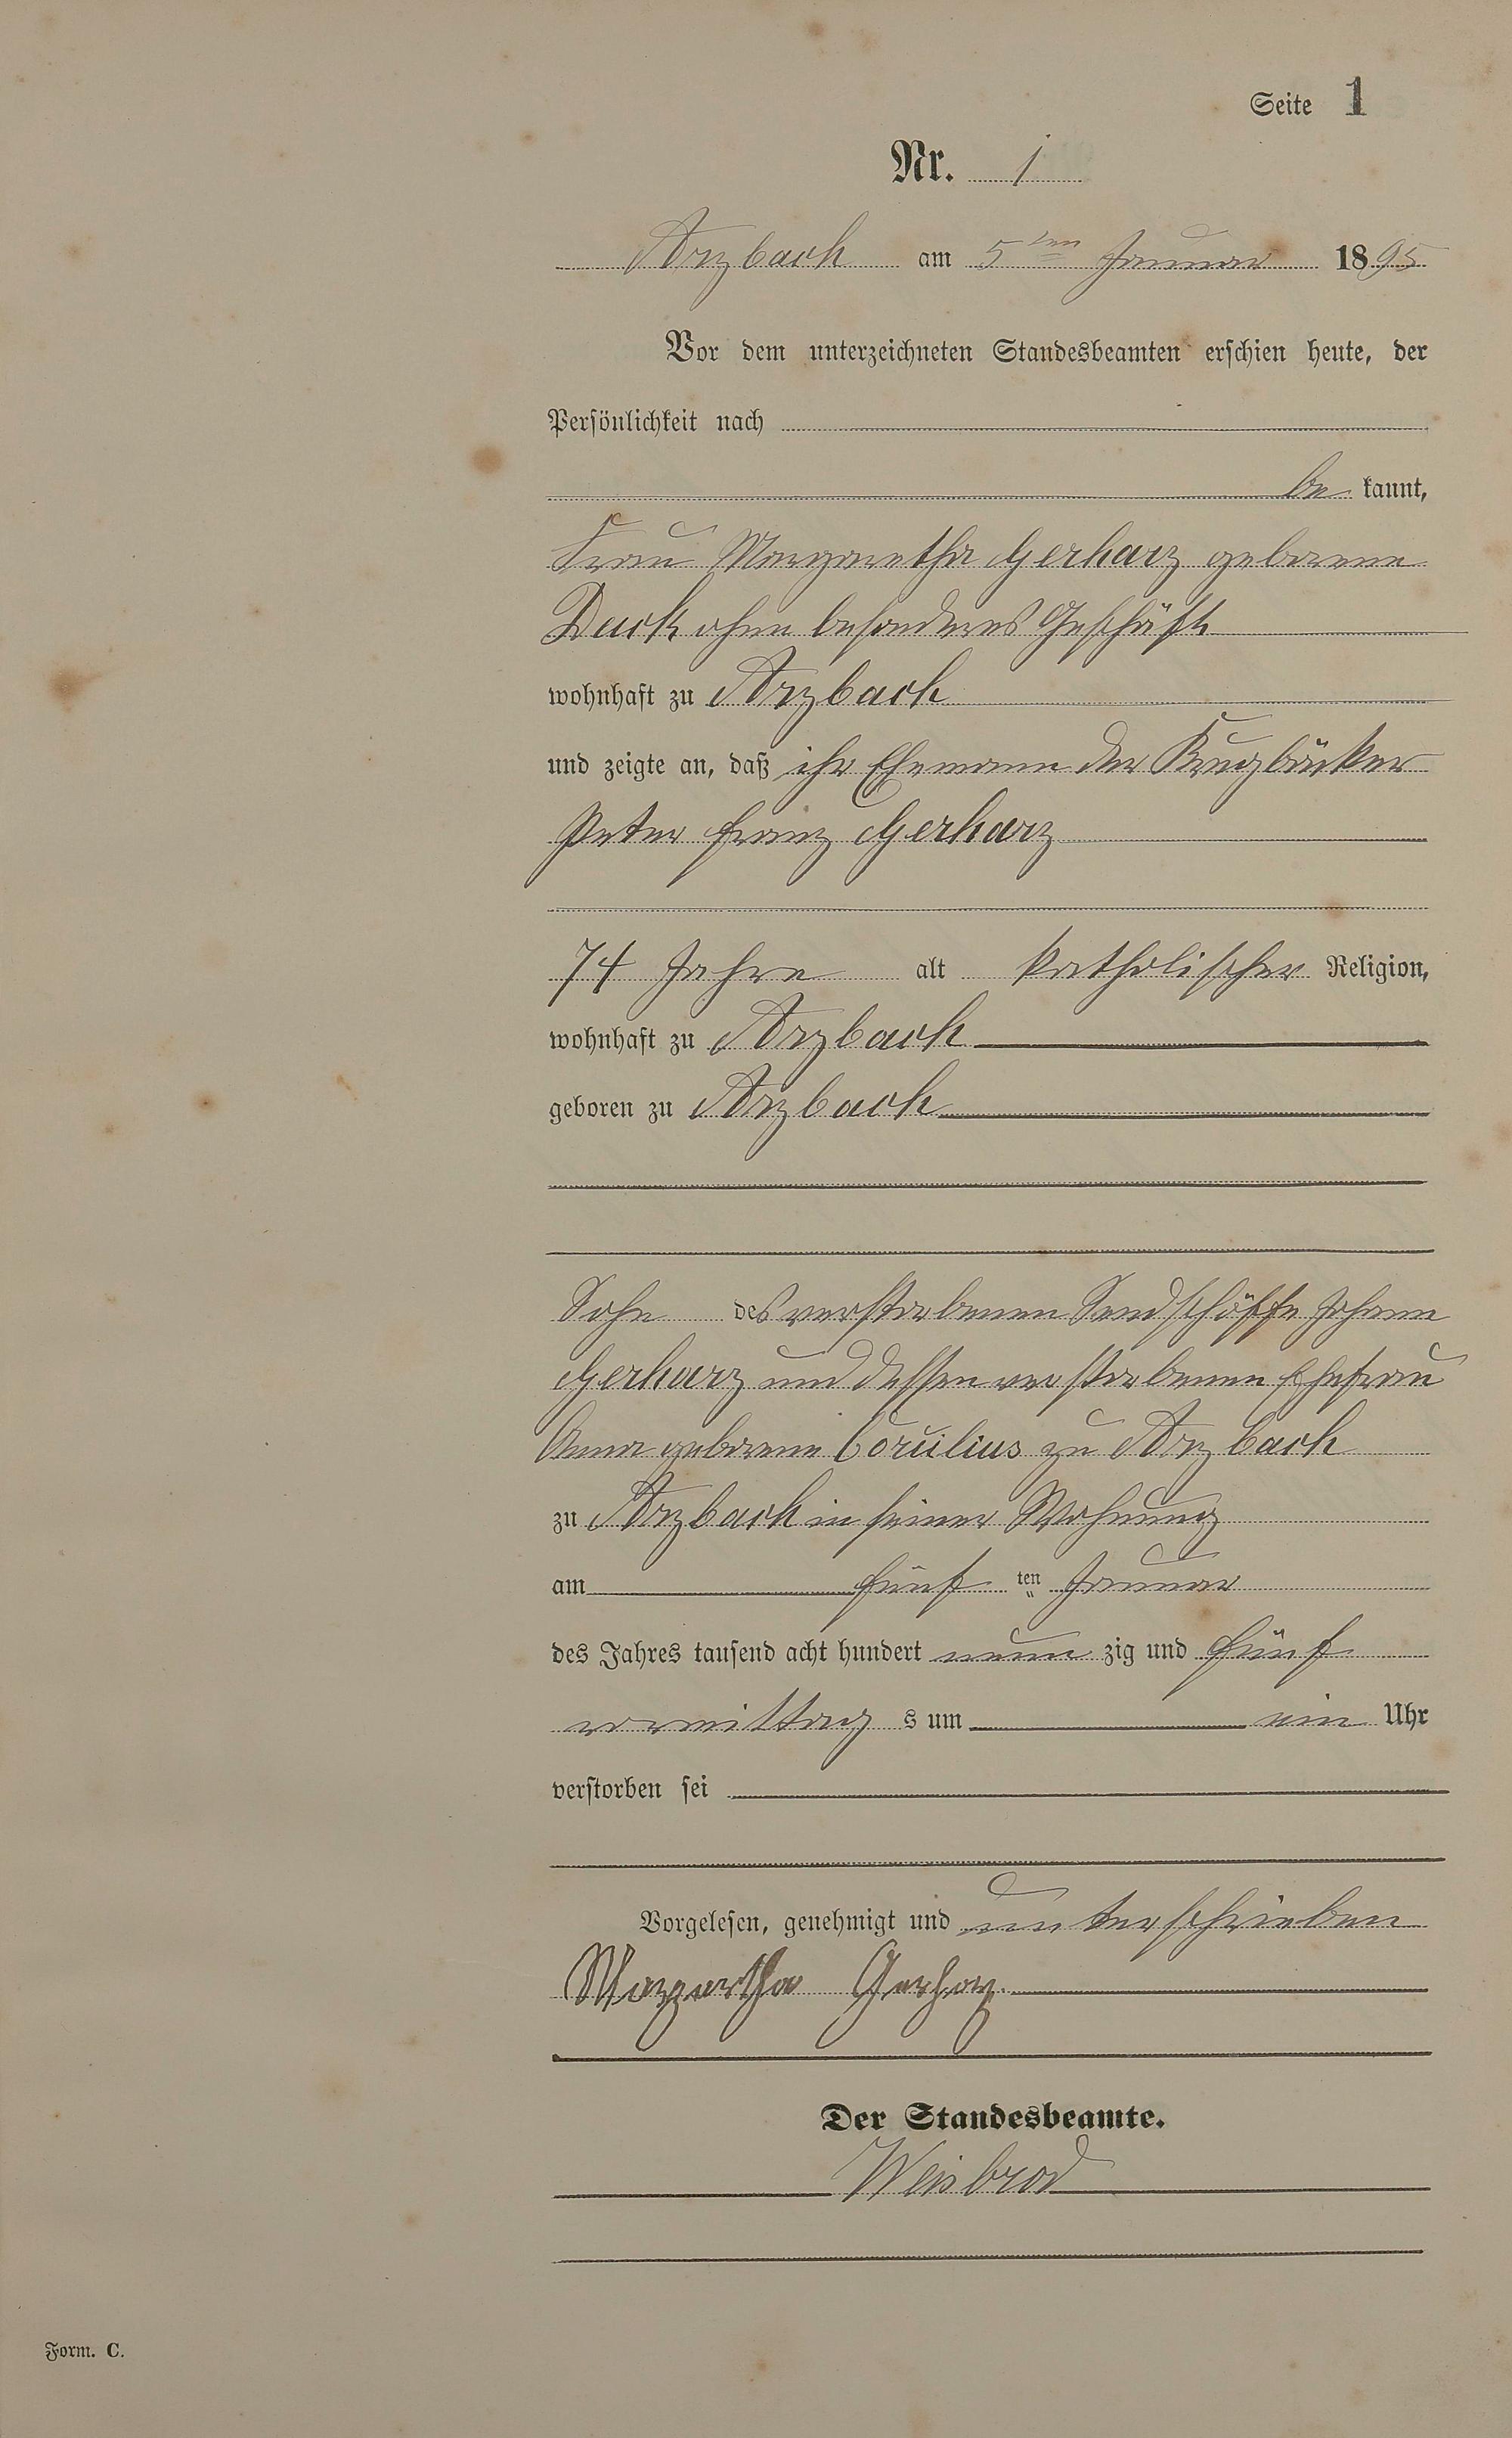 Seite 1
Nr. 1
Arzbach am 5ten Januar 1895
Vor dem unterzeichneten Standesbeamten erschien heute, der
Persönlichkeit nach
be kannt,
Frau Margaretha Gerharz geborene
Duck ohne besonderes Geschäft
wohnhaft zu Arzbach
und zeigte an, daß ihr Ehemann der Krugbäcker
Peter Franz Gerharz
74 Jahre alt katholischer Religion,
wohnhaft zu Arzbach
geboren zu Arzbach
Sohn des verstorbenen Sendschöffe Johann
Gerharz und dessen verstorbenen Ehefrau
Anna geborene Corcilius zu Arzbach
zu Arzbach in seiner Wohnung
am fünf ten Januar
des Jahres tausend acht hundert neun zig und fünf
vormittag s um ein Uhr
verstorben sei
Vorgelesen, genehmigt und unterschrieben
Margartha Gerharz.
Der Standesbeamte.
Weisbrod
Form. C.